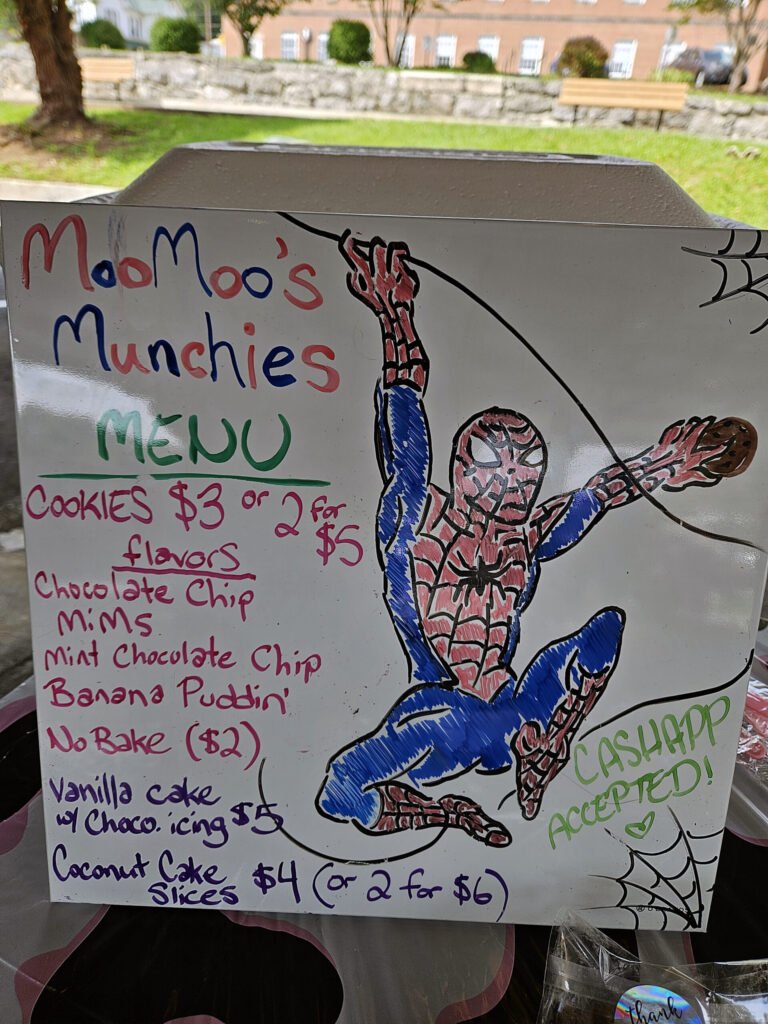 MooMoo's
Munchies
MENU
COOKIES $3 or 2 for
$5
flavors
Chocolate Chip
MiMs
Mint Chocolate Chip
Banana Puddin'
No Bake ($2)
Vanilla cake
w/ Choco. icing $5
Coconut Cake
Slices $4 (or 2 for $6)
CASHAPP
ACCEPTED!
thank